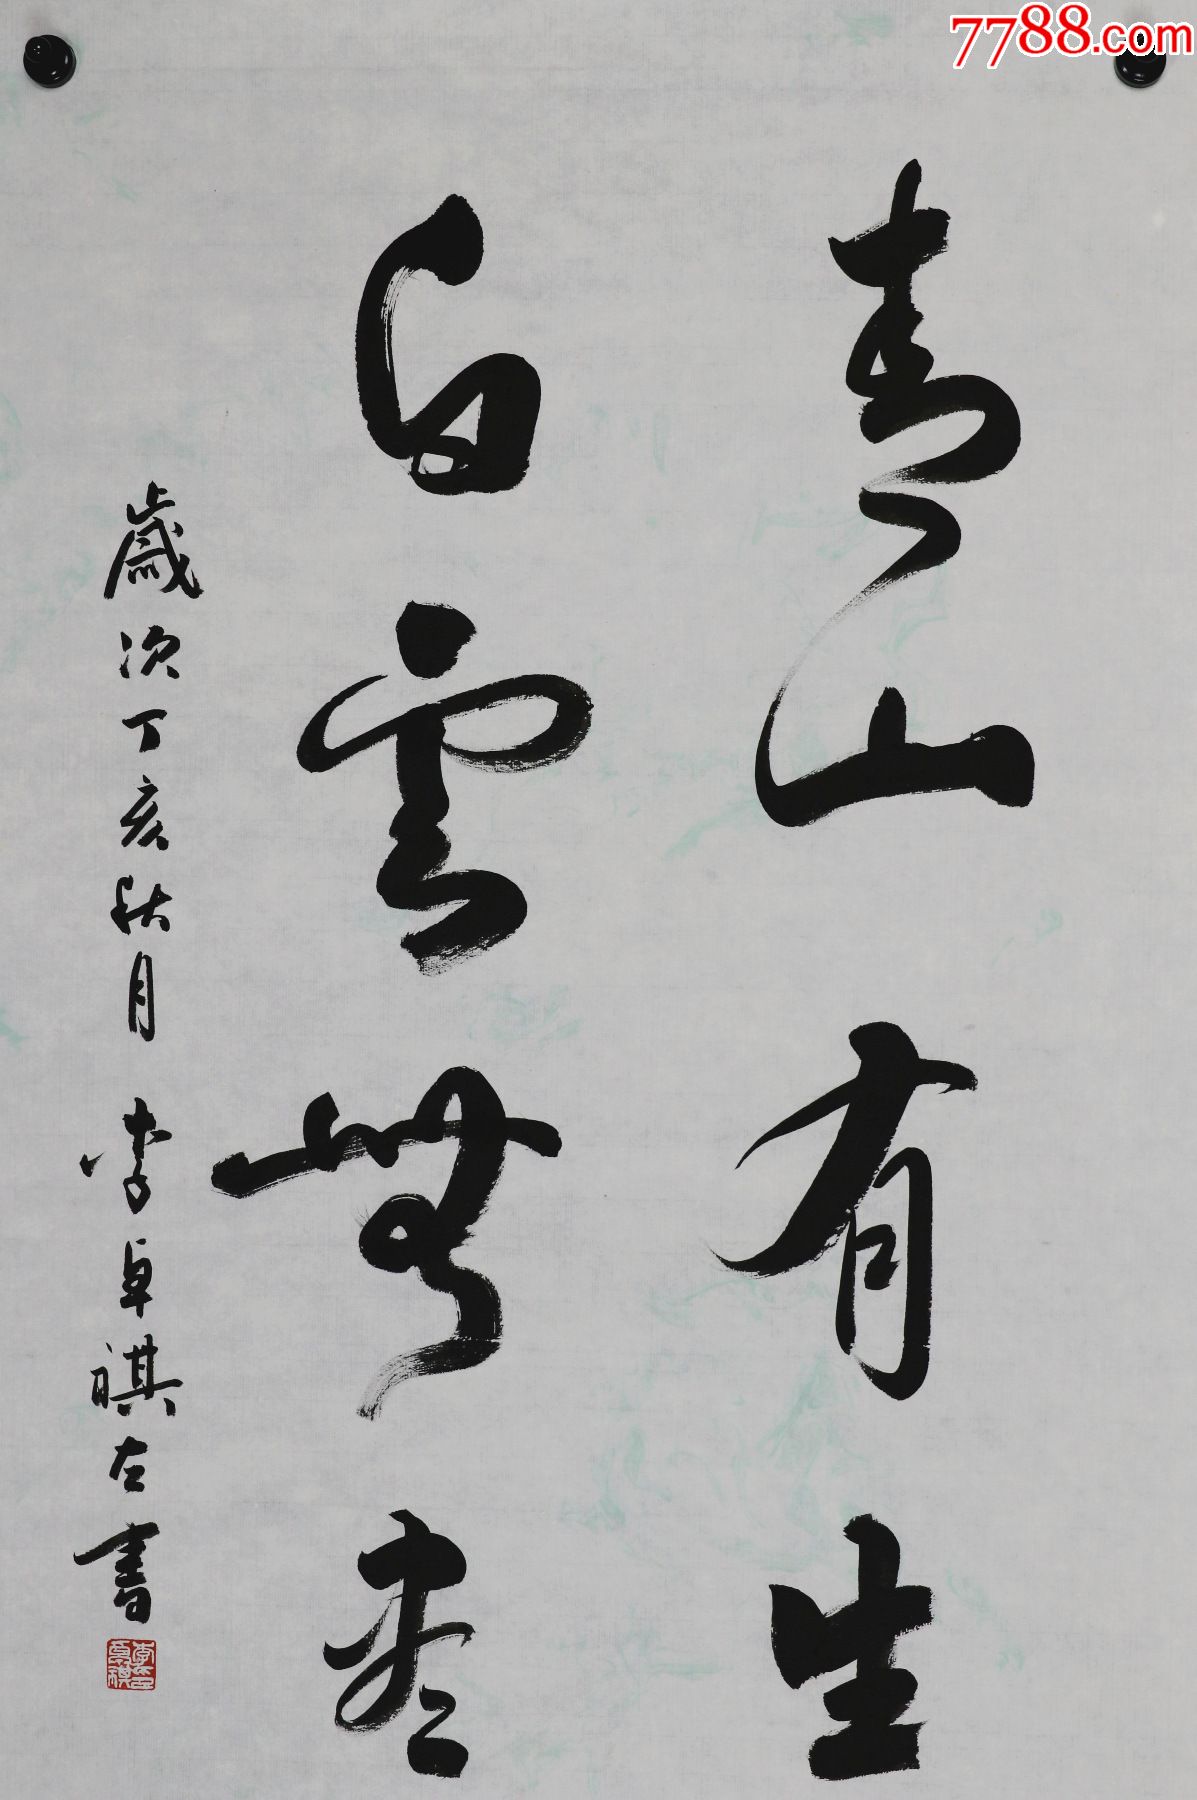 7788.com
青山有生
白雲無盡
歲次丁亥秋月 李卓祺左書
李卓祺印